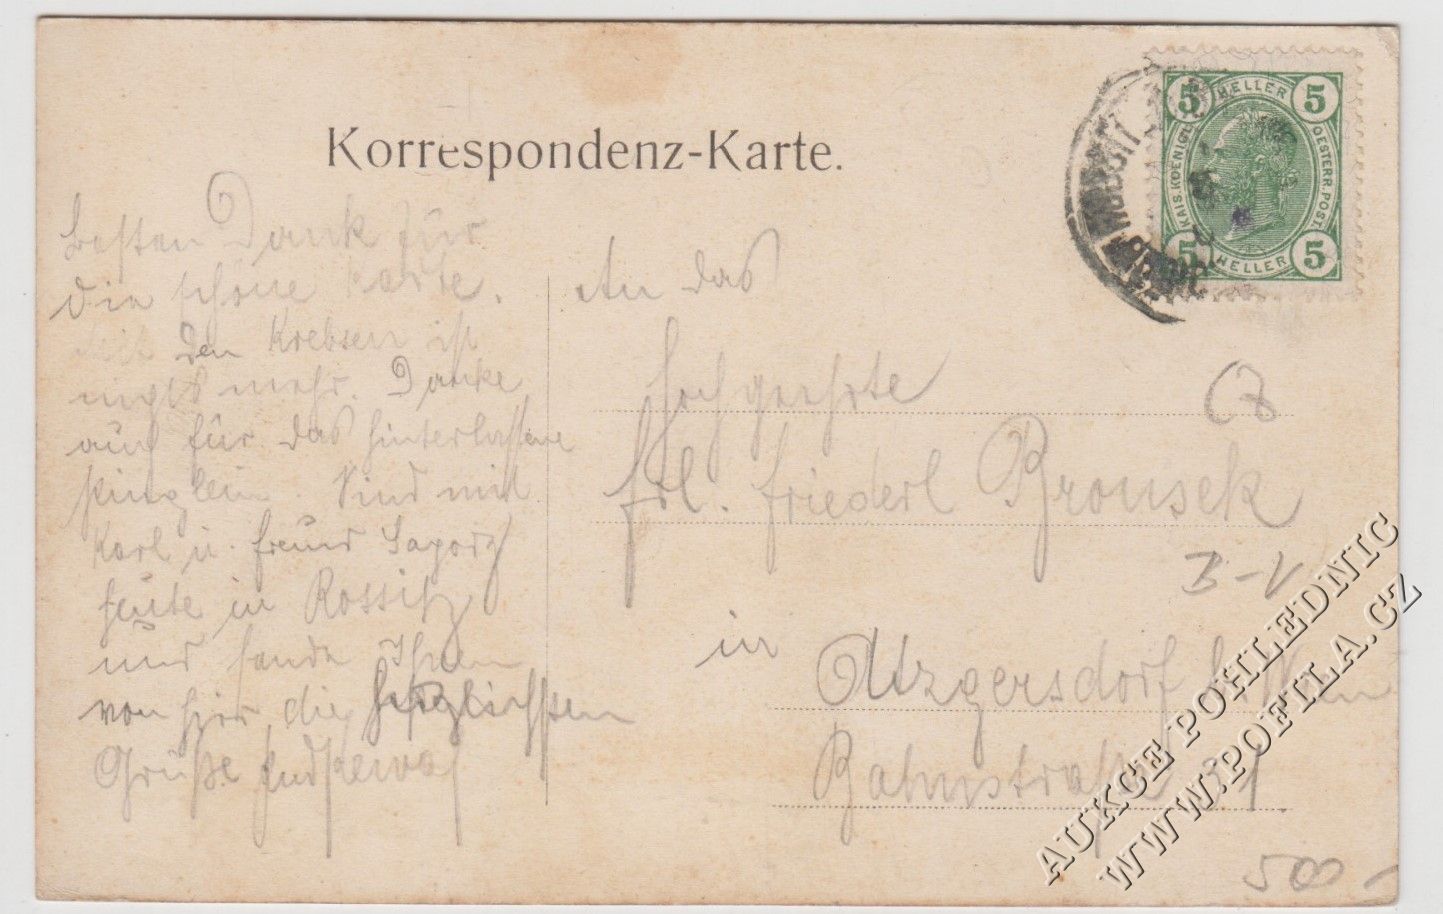 Korrespondenz-Karte.
5 HELLER 5
KAIS. KOENIGL. OESTERR. POST.
5 HELLER 5
Besten Dank für
die schöne Karte.
den Krebsen ist
nichts mehr. Danke
auch für das hinterlassene
Sind mit
Karl u. Freund
heute in Rossitz
und sende Ihnen
von hier die herzlichsten
Grüße
An das
Hochgeehrte
Frl. Friederl Brousek
in
Atzgersdorf b. Wien
Bahnstraße 31.
B-V
500-
AUKCE POHLEDNIC
WWW.POFILA.CZ